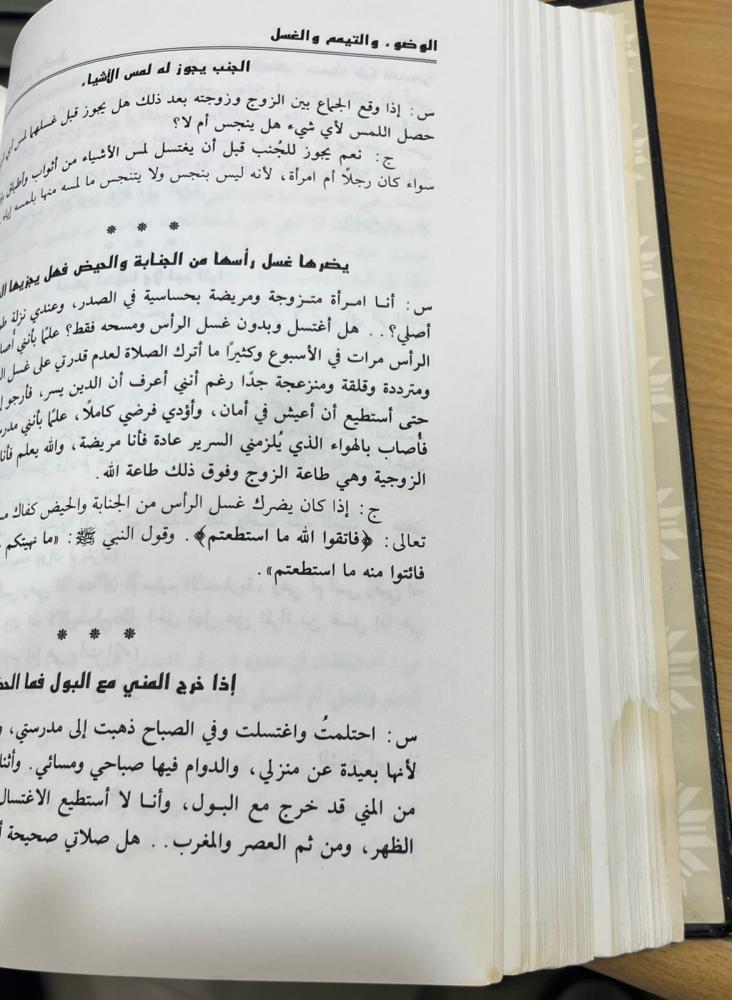 الوضوء، والتيمم والغسل
الجنب يجوز له لمس الأشياء
س: إذا وقع الجماع بين الزوج وزوجته بعد ذلك هل يجوز قبل غسلهما لمس
حصل اللمس لأي شيء هل ينجس أم لا؟
ج: نعم يجوز للجُنب قبل أن يغتسل لمس الأشياء من أثواب وأطباق
سواء كان رجلًا أم امرأة، لأنه ليس بنجس ولا يتنجس ما لمسه منها بلمسه
* * *
يضرها غسل رأسها من الجنابة والحيض فهل يجزيها
س: أنـا امـرأة متـزوجة ومريضة بحساسية في الصدر، وعندي نزلة
أصلي؟.. هل أغتسل وبدون غسل الرأس ومسحه فقط؟ علمًا بأنني
الرأس مرات في الأسبوع وكثيرًا ما أترك الصلاة لعدم قدرتي على غسل
ومترددة وقلقة ومنزعجة جدًا رغم أنني أعرف أن الدين يسر، فأرجو
حتى أستطيع أن أعيش في أمان، وأؤدي فرضي كاملًا، علمًا بأنني
فأصاب بالهواء الذي يُلزمني السرير عادة فأنا مريضة، والله يعلم
الزوجية وهي طاعة الزوج وفوق ذلك طاعة الله.
ج: إذا كان يضرك غسل الرأس من الجنابة والحيض كفاك
تعالى: ﴿فاتقوا الله ما استطعتم﴾. وقول النبي ﷺ: «ما نهيتكم
فائتوا منه ما استطعتم».
* * *
إذا خرج المني مع البول فما
س: احتلمتُ واغتسلت وفي الصباح ذهبت إلى مدرستي،
لأنها بعيدة عن منزلي، والدوام فيها صباحي ومسائي.
من المني قد خرج مع البـول، وأنـا لا أستطيع الاغتسال
الظهر، ومن ثم العصر والمغرب.. هل صلاتي صحيحة